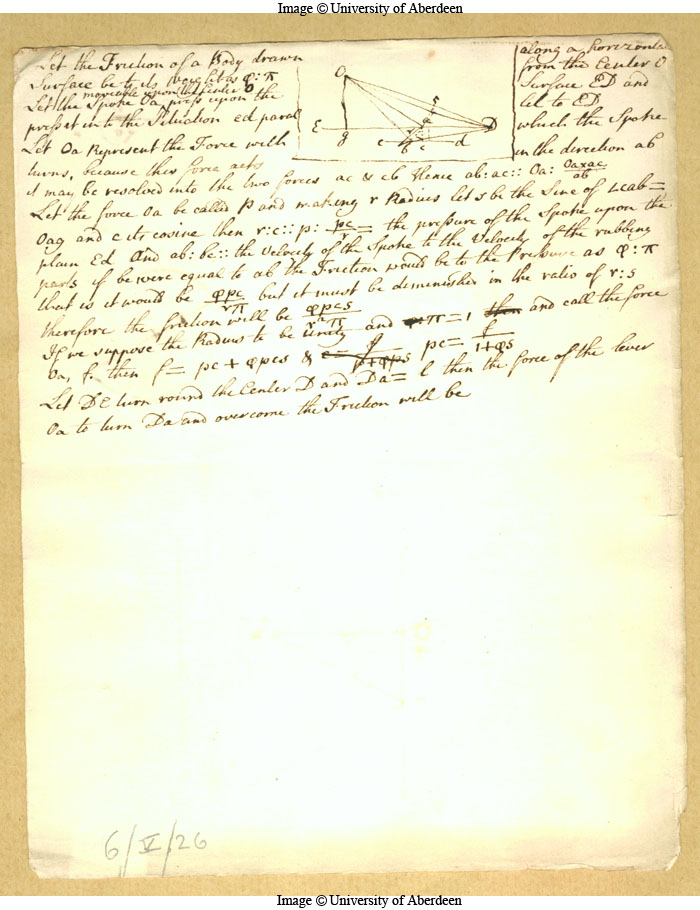 Image © University of Aberdeen
Let the Friction of a Body drawn along a horizontal
Surface be to its Weight as φ:π
moveable upon the Center O
from the Center O
Let the Spoke Oa press upon the Surface ED and
press it into the Situation ed paral lel to ED
Let Oa Represent the Force with which the Spoke
turns, because this force acts in the direction ab
it may be resolved into the two forces ac & cb Hence ab:ac:: Oa: Oa×ac/ab
Let the force Oa be called p and making r Radius let s be the Sine of ∠cab=
Oag and c its cosine then r:c::p: pc/r = the pressure of the Spoke upon the
plain Ed And ab:bc:: the Velocity of the Spoke to the Velocity of the rubbing
parts if bc were equal to ab the Friction would be to the Pressure as φ:π
that is it would be φpc/rπ but it must be diminished in the ratio of r:s
therefore the friction will be φpcs/r²π
If we suppose the Radius to be Unity and π=1 and call the force
Oa, f. then f= pc+φpcs & pc= f/1+φs
Let DE turn round the Center D and Da= l then the force of the lever
Oa to turn Da and overcome the Friction will be
O
E
g
e
b
c
d
D
a
s
6/V/26
Image © University of Aberdeen